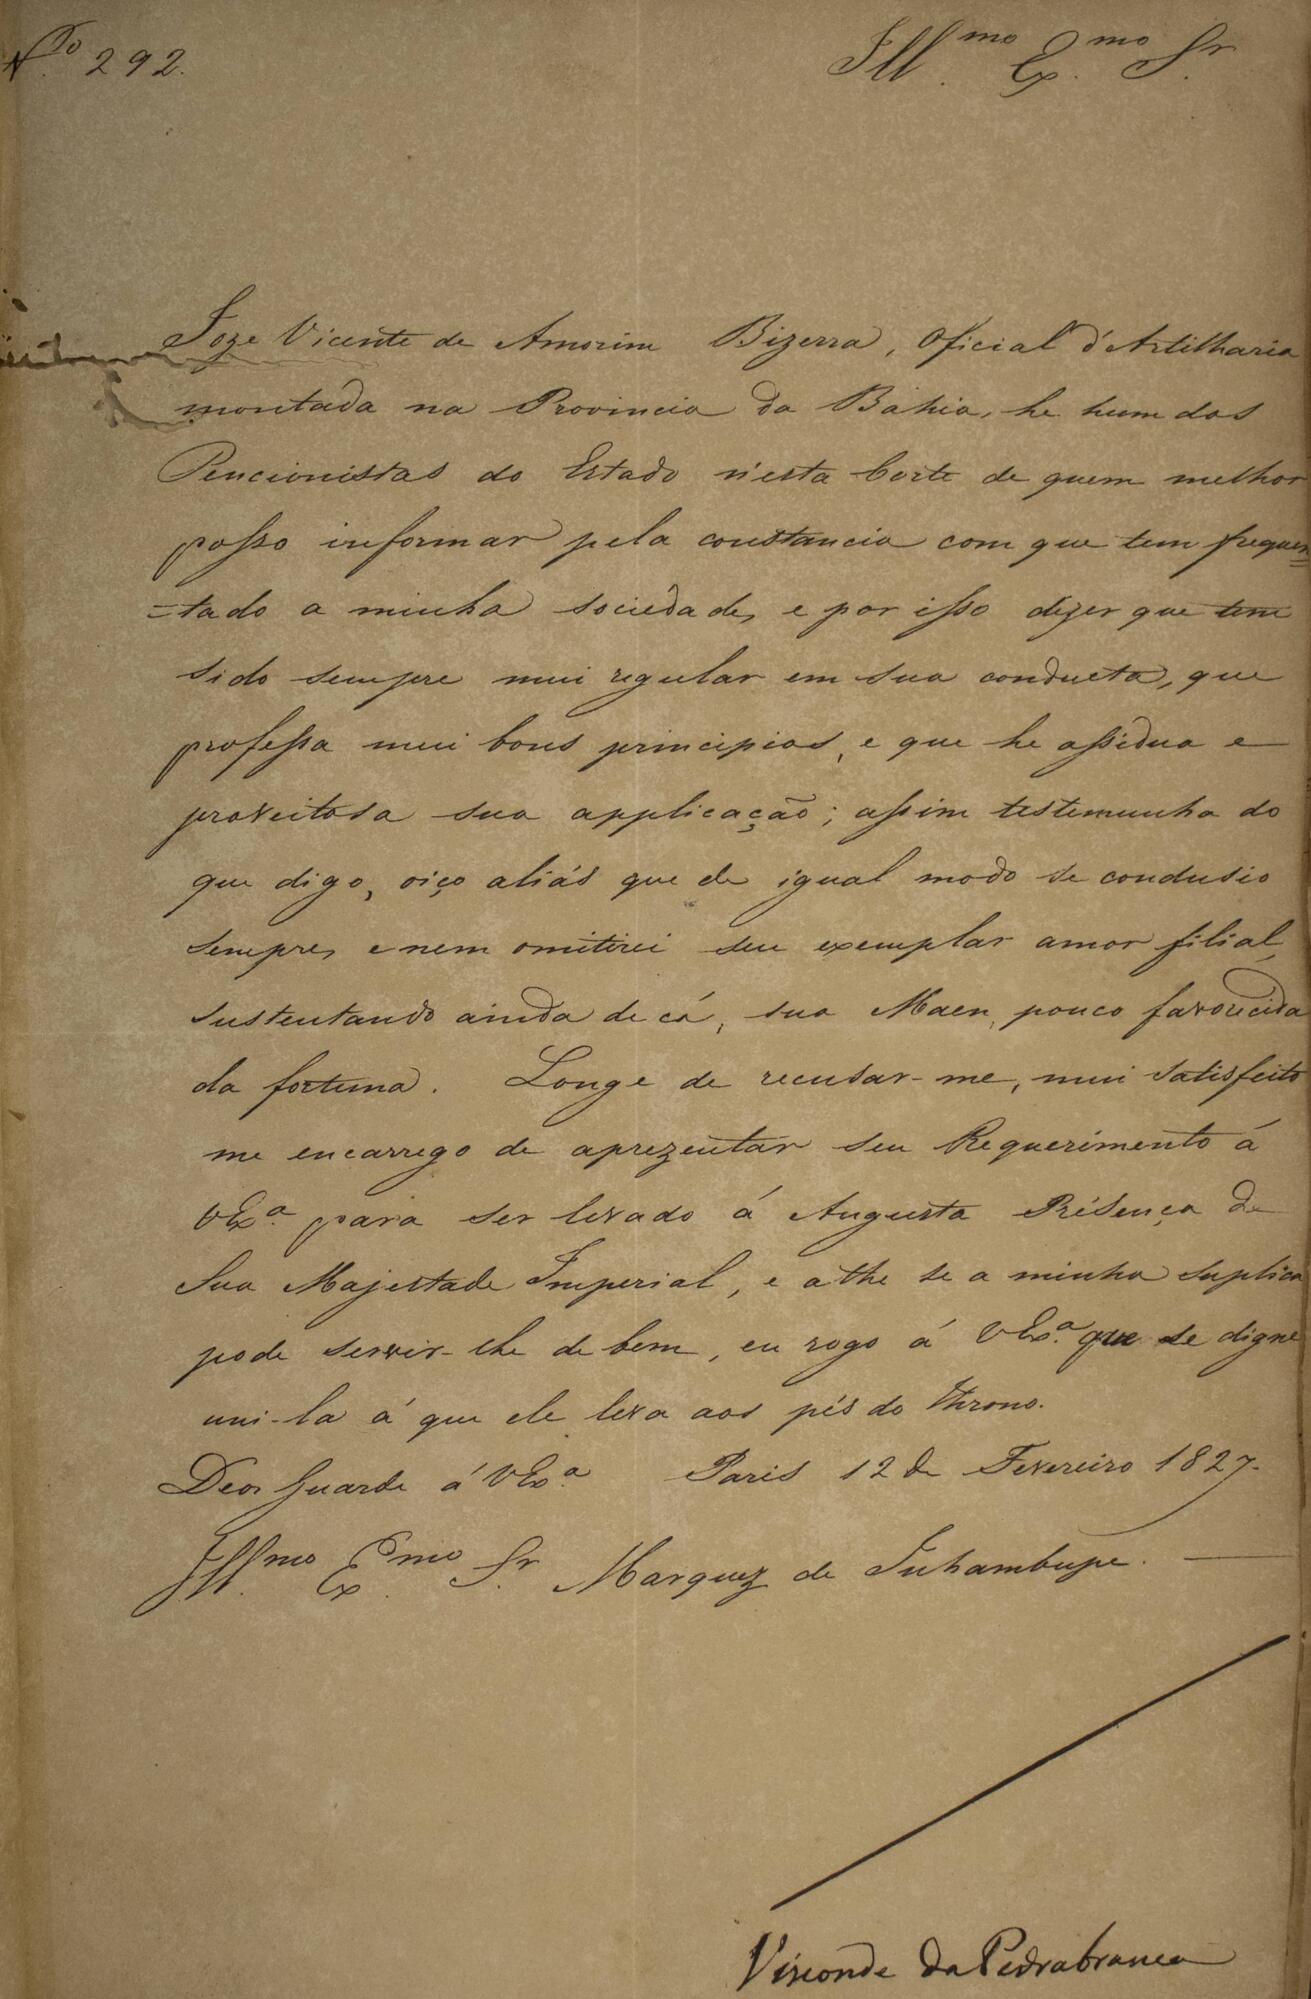 N.º 292.
Ill.mo Ex.mo Sr.
Joze Vicente de Amorim Bizerra, Oficial d'Artilharia
montada na Provincia da Bahia, he hum dos
Pencionistas do Estado n'esta Corte de quem melhor
posso informar pela constancia com que tem frequen=
=tado a minha sociedade, e por isso dizer que tem
sido sempre mui regular em sua conducta, que
professa mui bons principios, e que he assidua e
proveitosa sua applicação; assim testemunha do
que digo, oiço aliás que de igual modo se condusio
sempre, e nem omitirei seu exemplar amor filial,
sustentando ainda de cá, sua Maen, pouco favorecida
da fortuna. Longe de recusar-me, mui satisfeito
me encarrego de aprezentar seu Requerimento á
VEx.a para ser levado á Augusta Présença de
Sua Majestade Imperial, e athe se a minha suplica
pode servir-lhe de bem, eu rogo á VEx.a que se digne
uni-la á que ele leva aos pés do Throno.
Deos Guarde á VEx.a Paris 12 de Fevereiro 1827.
Ill.mo Ex.mo Sr. Marquez de Inhambupe.
Visconde da Pedrabranca